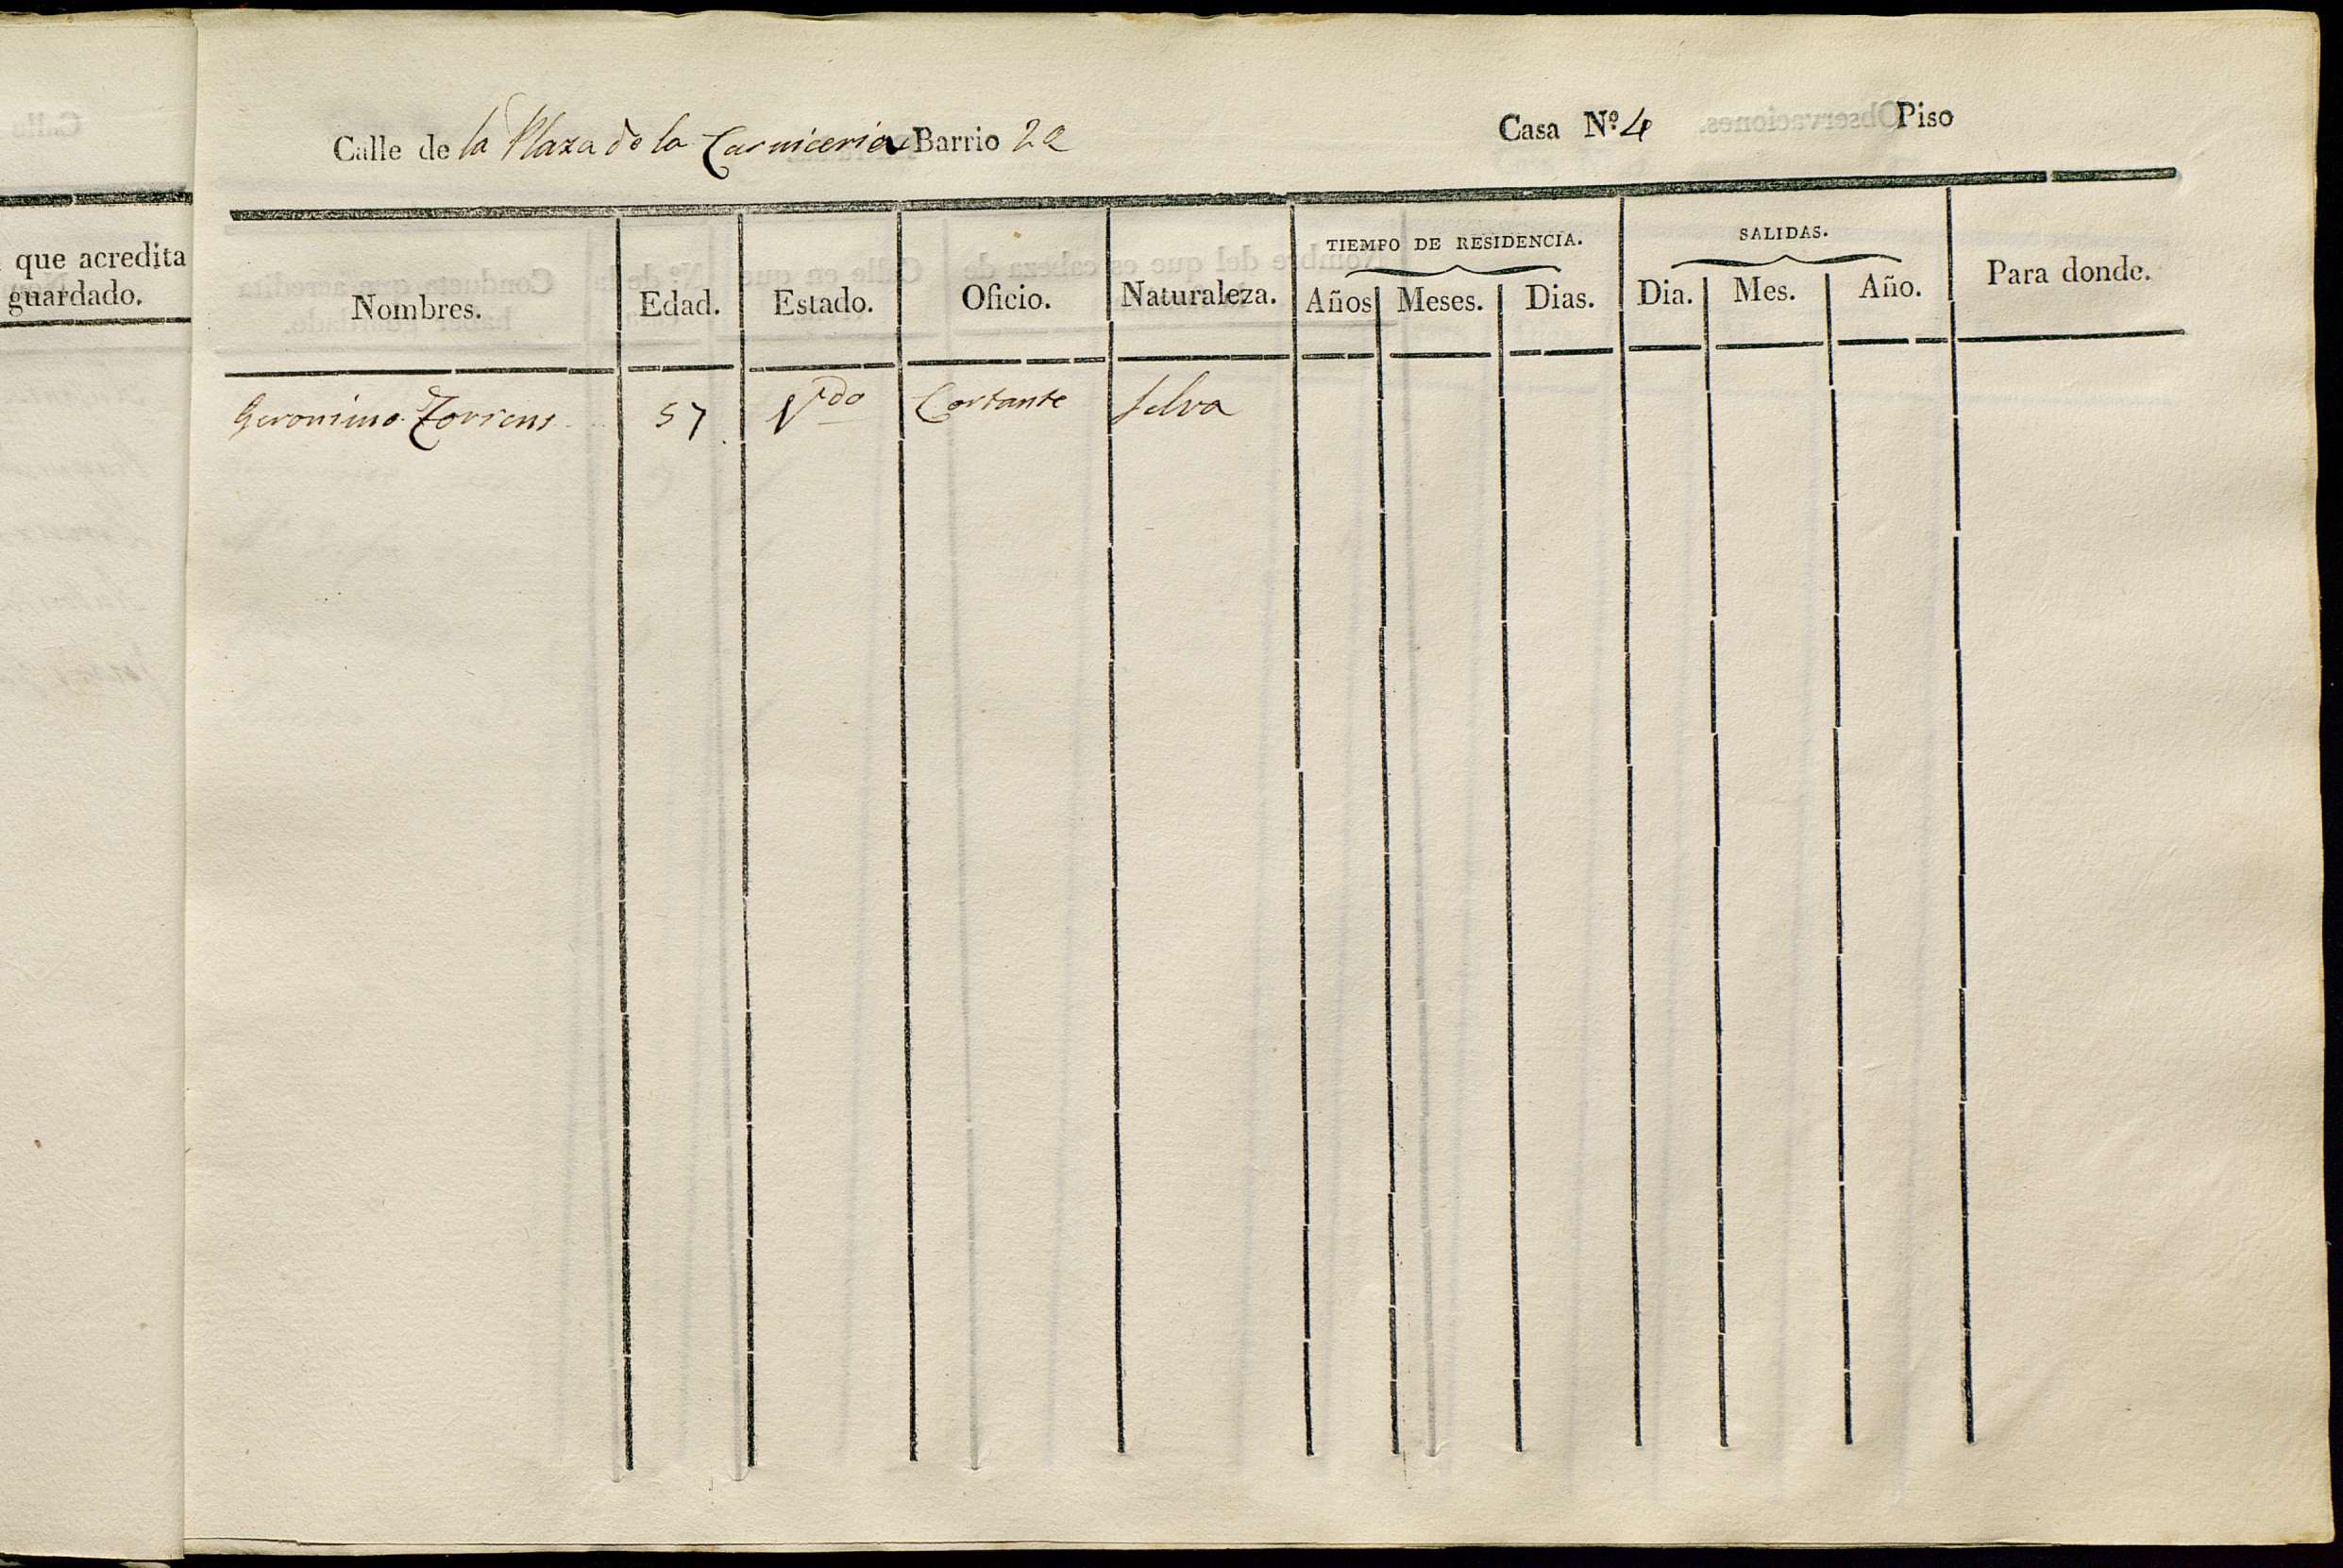 que acredita
guardado.
Calle de la Plaza de la Carniceria Barrio 2º Casa Nº 4 Piso
Nombres. Edad. Estado. Oficio. Naturaleza. TIEMPO DE RESIDENCIA. Años Meses. Dias. SALIDAS. Dia. Mes. Año. Para donde.
Geronimo Torrens 57 Vdo Cortante Selva